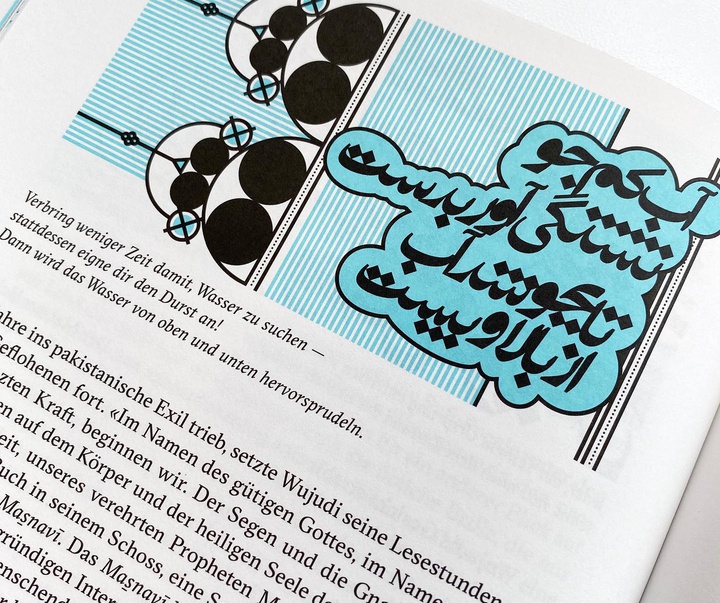 آب کم جو
تشنگی آور بدست
تا بجوشد آب
از بالا و پست
Verbring weniger Zeit damit, Wasser zu suchen –
stattdessen eigne dir den Durst an!
Dann wird das Wasser von oben und unten hervorsprudeln.
ahre ins pakistanische Exil trieb, setzte Wujudi seine Lesestunden
eflohenen fort. «Im Namen des gütigen Gottes, im Name
zten Kraft, beginnen wir. Der Segen und die Gna
en auf dem Körper und der heiligen Seele de
eit, unseres verehrten Propheten M
Buch in seinem Schoss, eine S
Maṣnavī. Das Maṣnavī
gründigen Inter
enschend